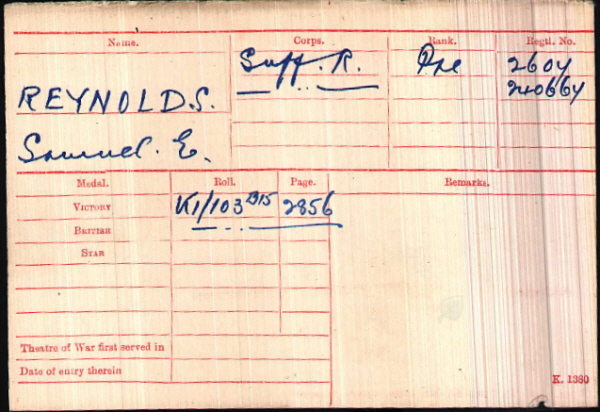 Name. Corps. Rank. Regtl. No.
Suff. R. Pte 2604
REYNOLDS. 240664
Samuel. E.
Medal. Roll. Page. Remarks.
VICTORY K1/103 B15 2856
BRITISH
STAR
Theatre of War first served in
Date of entry therein
K. 1380